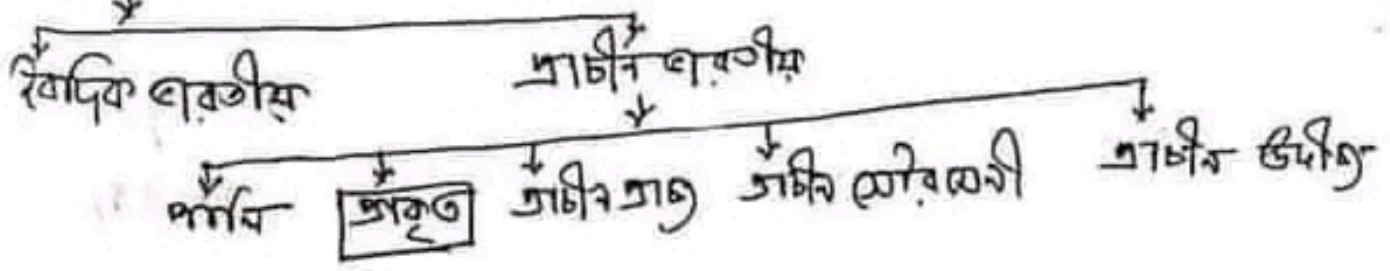 বৈদিক ভারতীয় প্রাচীন ভারতীয়
পালি প্রাকৃত প্রাচীন প্রাচ্য প্রাচীন সৌরসেনী প্রাচীন উদীচ্য